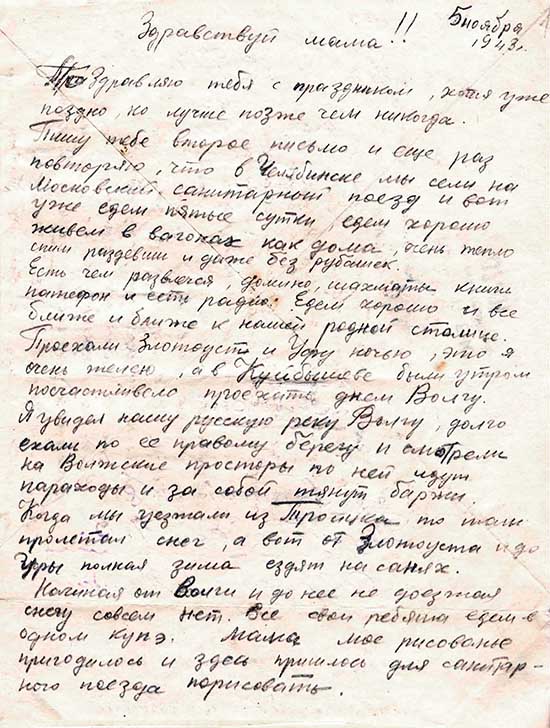 Здравствуй мама!! 5 ноября
1943 г.
Поздравляю тебя с праздником, хотя уже
поздно, но лучше позже чем никогда.
Пишу тебе второе письмо и еще раз
повторяю, что в Челябинске мы сели на
Московский санитарный поезд и вот
уже едем пятые сутки, едем хорошо
живем в вагонах как дома, очень тепло
спим раздевши и даже без рубашек.
Есть чем развлечся, домино, шахматы книги
патефон и есть радио. Едем хорошо и все
ближе и ближе к нашей родной столице.
Проехали Златоуст и Уфу ночью, это я
очень жалею, а в Куйбышеве были утром
посчастливело проехать днем Волгу.
Я увидел нашу русскую реку Волгу, долго
ехали по ее правому берегу и смотрели
на Волжские просторы по ней идут
параходы и за собой тянут баржи.
Когда мы уезжали из Троицка, то там
пролетал снег, а вот от Златоуста и до
Уфы полная зима ездят на санях.
Начиная от Волги и до нее не доезжая
снегу совсем нет. Все свои ребята едем в
одном купэ. Мама мое рисованье
пригодилось и здесь пришлось для санитар-
ного поезда порисовать.